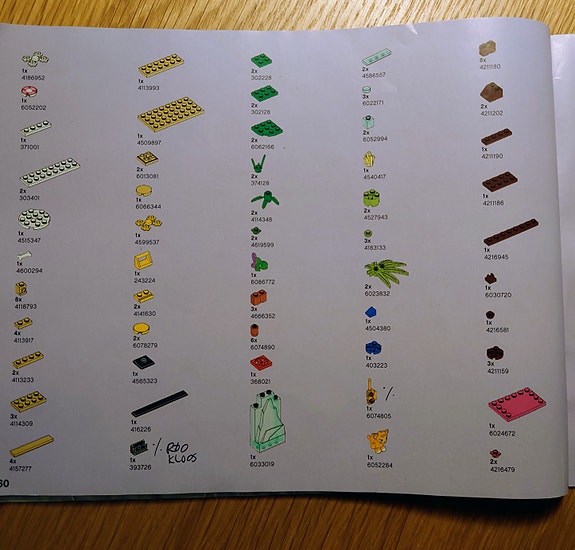 1x
4186952
1x
6052202
1x
371001
2x
303401
1x
4515347
1x
4600294
8x
4118793
4x
4113917
2x
4113233
3x
4114309
4x
4157277
1x
4113993
1x
4509897
2x
6013081
1x
6066344
1x
4599537
1x
243224
2x
4141630
2x
6078279
1x
4565323
1x
416226
1x
393726
% RØD
KLODS
2x
302228
2x
302128
2x
6062166
2x
374128
2x
4114348
2x
4619599
1x
6086772
3x
4666352
6x
6074890
1x
368021
1x
6033019
2x
4586557
3x
6022171
2x
6052994
1x
4540417
2x
4527943
3x
4183133
2x
6023832
1x
4504380
1x
403223
1x
6074805
%
1x
6052284
8x
4211180
2x
4211202
1x
4211190
1x
4211186
1x
4216945
1x
6030720
1x
4216581
3x
4211159
1x
6024672
2x
4216479
30